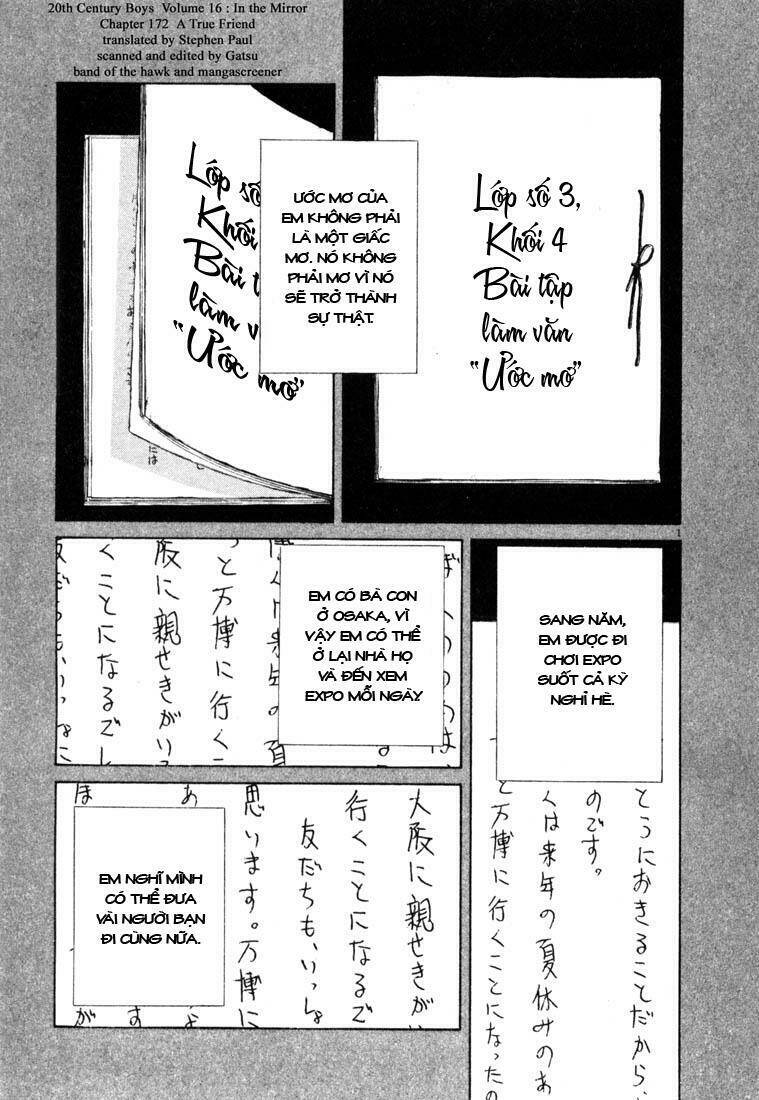 20th Century Boys Volume 16 : In the Mirror
Chapter 172 A True Friend
translated by Stephen Paul
scanned and edited by Gatsu
band of the hawk and mangascreener
Lớp số 3,
Khối 4
Bài tập
làm văn
"Ước mơ"
ƯỚC MƠ CỦA
EM KHÔNG PHẢI
LÀ MỘT GIẤC
MƠ. NÓ KHÔNG
PHẢI MƠ VÌ NÓ
SẼ TRỞ THÀNH
SỰ THẬT.
Lớp số
Khối
Bài tập
làm văn
"Ước mơ"
には
1
SANG NĂM,
EM ĐƯỢC ĐI
CHƠI EXPO
SUỐT CẢ KỲ
NGHỈ HÈ.
とうにおきることだから、
のです。
くは来年の夏休みのあ
と万博に行くことになったの
EM CÓ BÀ CON
Ở OSAKA, VÌ
VẬY EM CÓ THỂ
Ở LẠI NHÀ HỌ
VÀ ĐẾN XEM
EXPO MỖI NGÀY.
くは来年の夏
っと万博に行く
阪に親せきがい
くことになるで
友だちも、いっしょに
大阪に親せきがい
行くことになるで
友だちも、いっしょ
思います。万博に
EM NGHĨ MÌNH
CÓ THỂ ĐƯA
VÀI NGƯỜI BẠN
ĐI CÙNG NỮA.